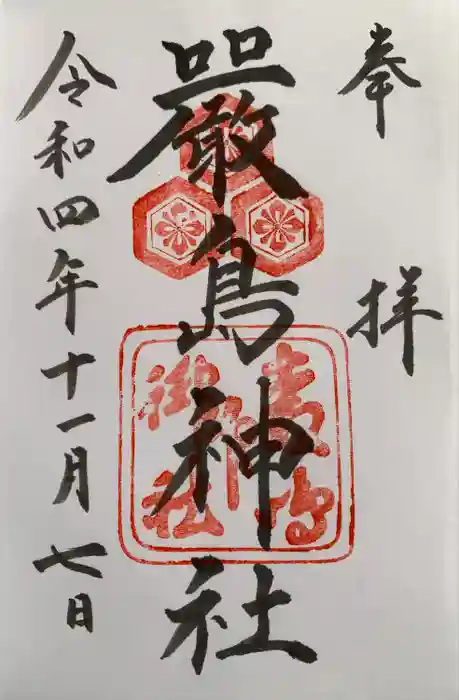 奉拝
嚴島神社
令和四年十一月七日